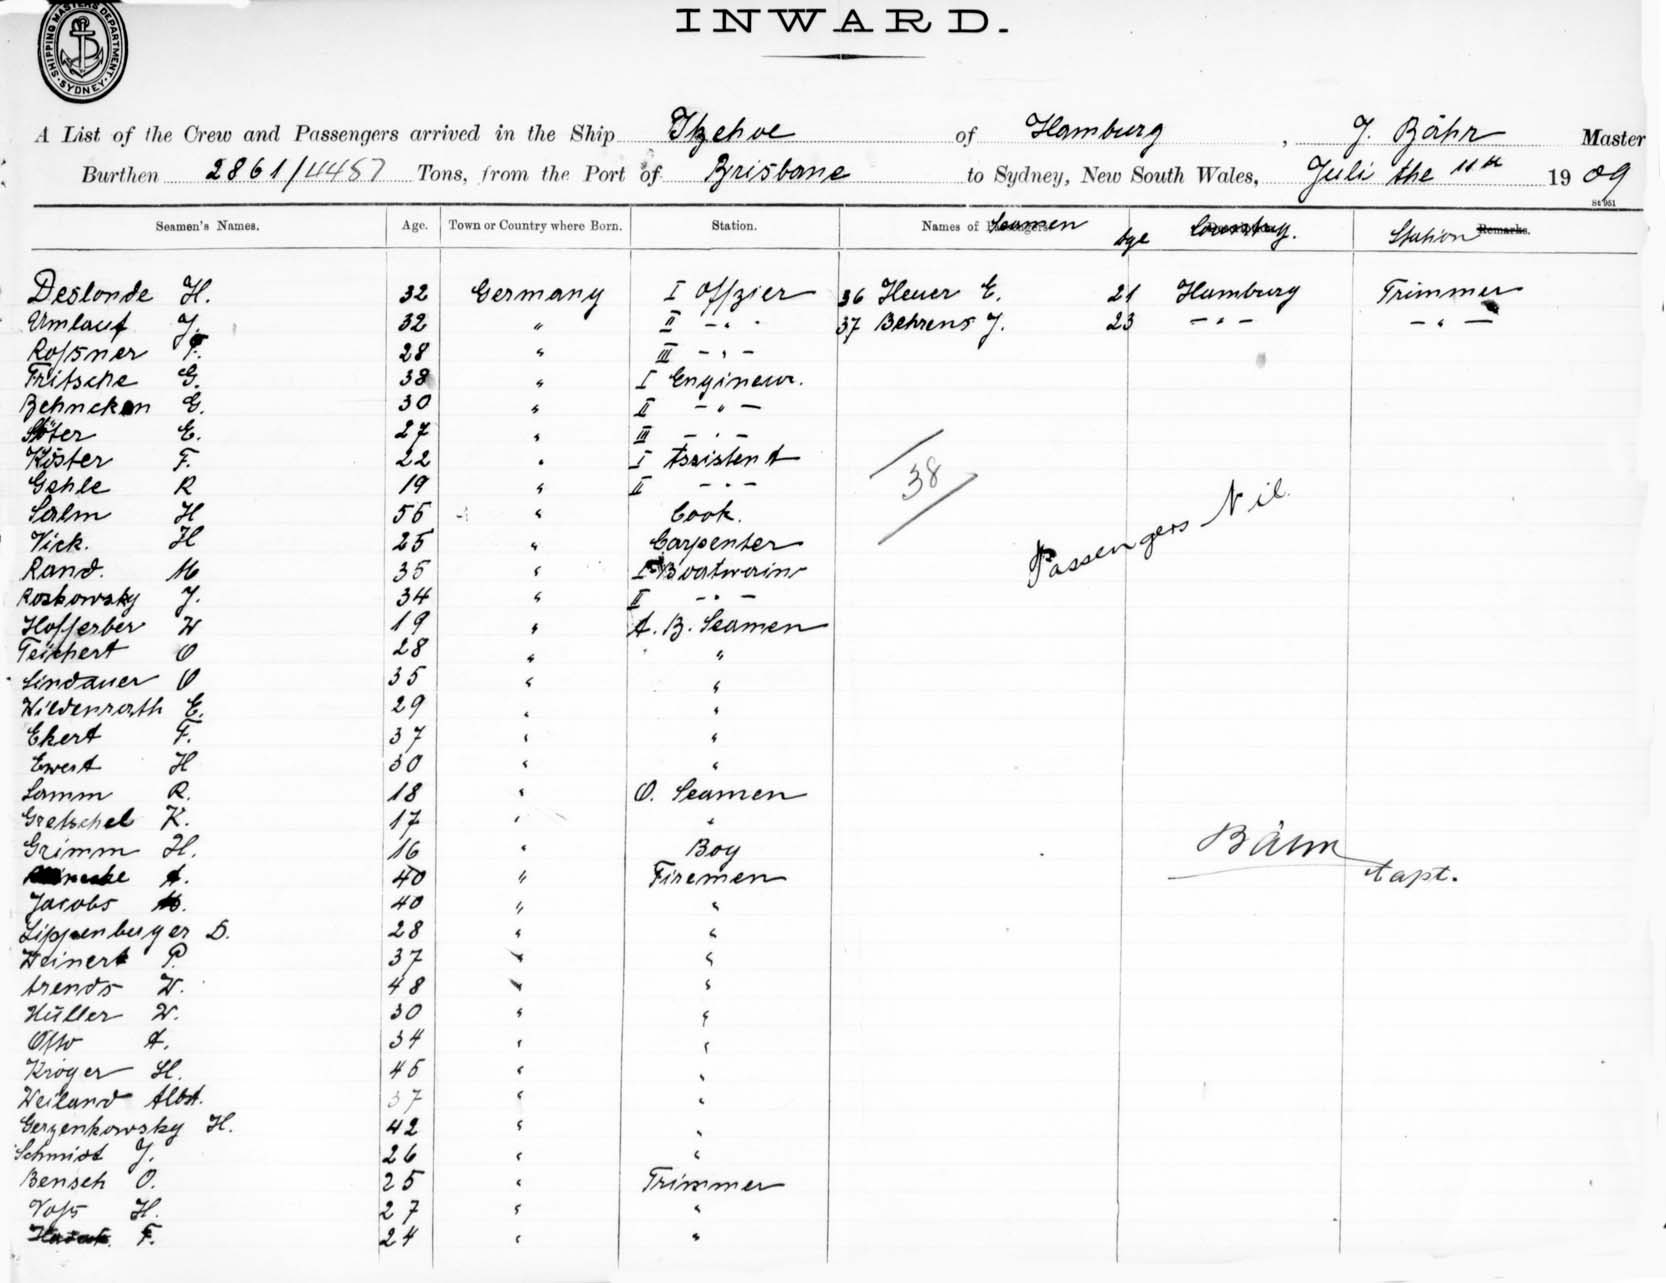 SHIPPING MASTERS DEPARTMENT. SYDNEY.
INWARD.
A List of the Crew and Passengers arrived in the Ship Itzehoe of Hamburg, J. Bähr Master
Burthen 2861/4487 Tons, from the Port of Brisbane to Sydney, New South Wales, Juli the 11th 1909
St 951
Seamen's Names. Age. Town or Country where Born. Station. Names of Seamen Age Country. Station Remarks.
Deslonde H. 32 Germany I Offzier 36 Heuer E. 21 Hamburg Trimmer
Umlauf J. 32 " II - " - 37 Behrens J. 23 - " - - " -
Roßner F. 28 " III - " -
Fritsche G. 38 " I Engineur.
Behncken G. 30 " II - " -
Söter E. 27 " III - " -
Köster F. 22 " I Assistent
Gehle R 19 " II - " -
Salm H 55 " Cook.
Vick. H 25 " Carpenter
Rand. M 35 " I
Roskowsky J. 34 " II - " -
Hofferber W 19 " A. B. Seamen
Teichert O 28 " "
Lindauer O 35 " "
Wildenrath E. 29 " "
Ekert F. 37 " "
Ewert H 30 " "
Lamm R. 18 " O. Seamen
Gretschel K. 17 " "
Grimm H. 16 " Boy
A. 40 " Firemen
Jacobs 40 " "
Lippenburger D. 28 " "
Weinert P. 37 " "
Arends W. 48 " "
Hüller W. 30 " "
Otto A. 34 " "
Kröger H. 45 " "
Weiland Albt. 37 " "
Gerzenkowsky H. 42 " "
Schmidt J. 26 " "
Bensch O. 25 " Trimmer
Voß H. 27 " "
F. 24 " "
38
Passengers Nil
Bähr
Capt.